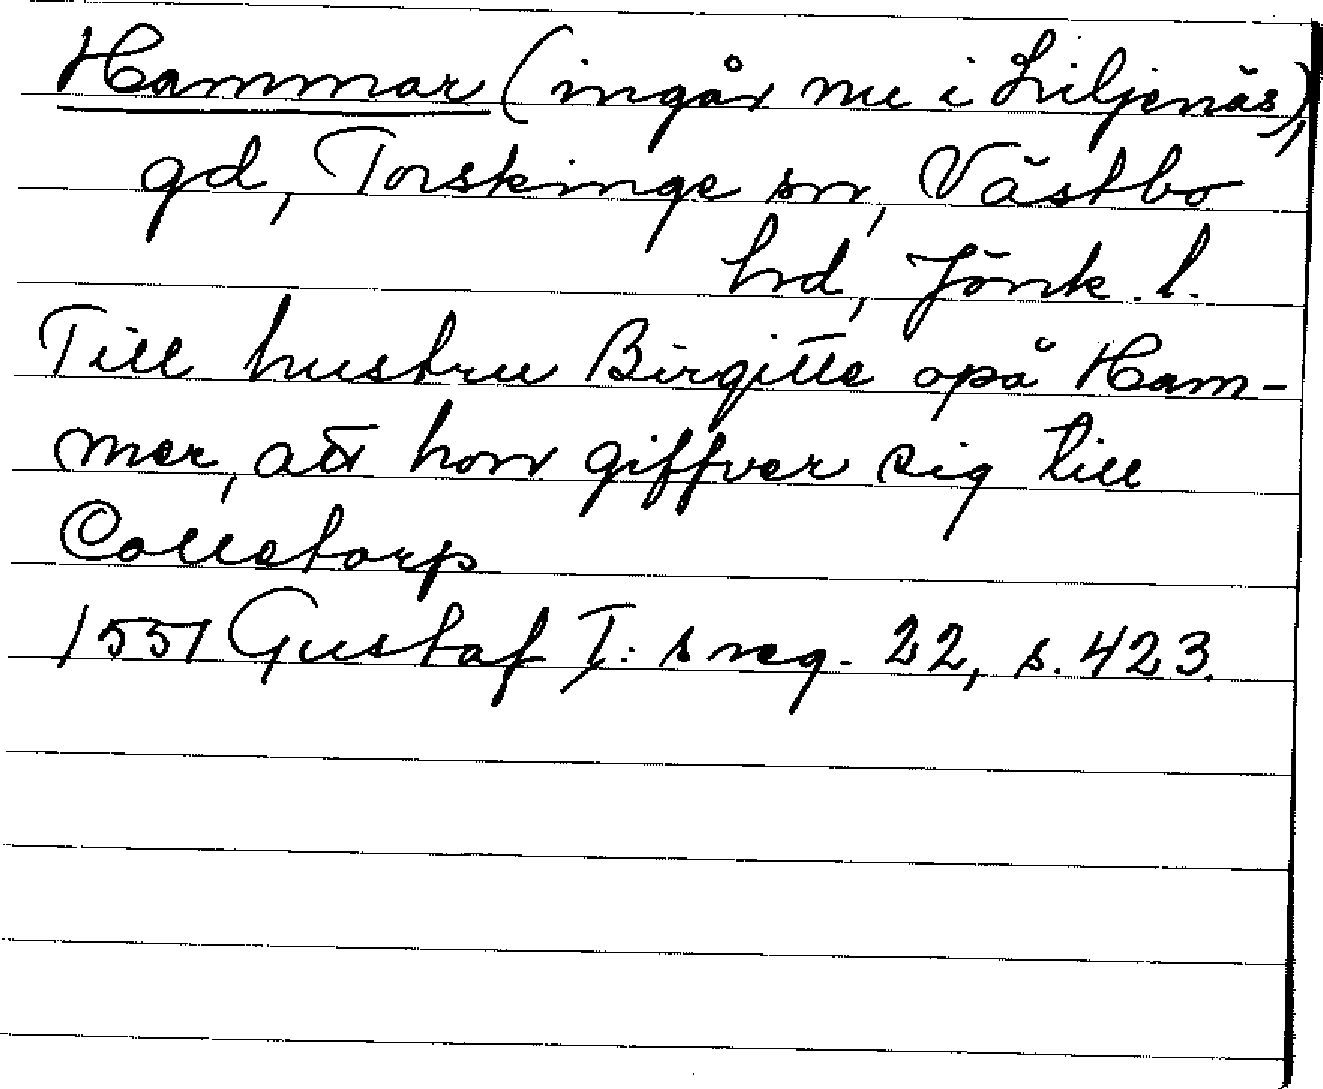 Hammar (ingår nu i Liljenäs),
gd, Torskinge sn, Västbo
hd, Jönk. l.
Till hustru Birgitte opå Ham-
mer, att hon giffver sig till
Colletorp
1551 Gustaf I:s reg. 22, s. 423.